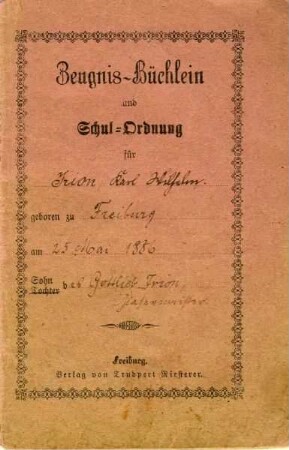 Zeugnis-Büchlein
und
Schul-Ordnung
für
Irion Karl Wilhelm.
geboren zu Freiburg
am 25 Mai 1886
Sohn
Tochter des Gottlieb Irion,
Freiburg.
Verlag von Trudpert Miesterer.